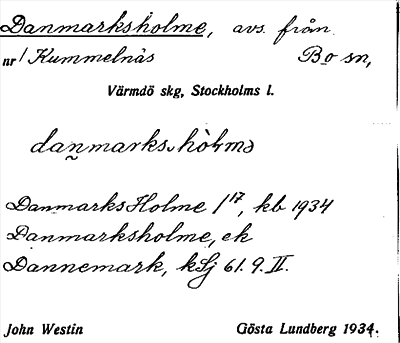 Danmarksholme, avs. från
nr 1 Kummelnäs Bo sn,
Värmdö skg, Stockholms l.
danmarks.hòlmə
DanmarksHolme 1/17, kb 1934
Danmarksholme, ek
Dannemark, kSj 61.9.II.
John Westin Gösta Lundberg 1934.